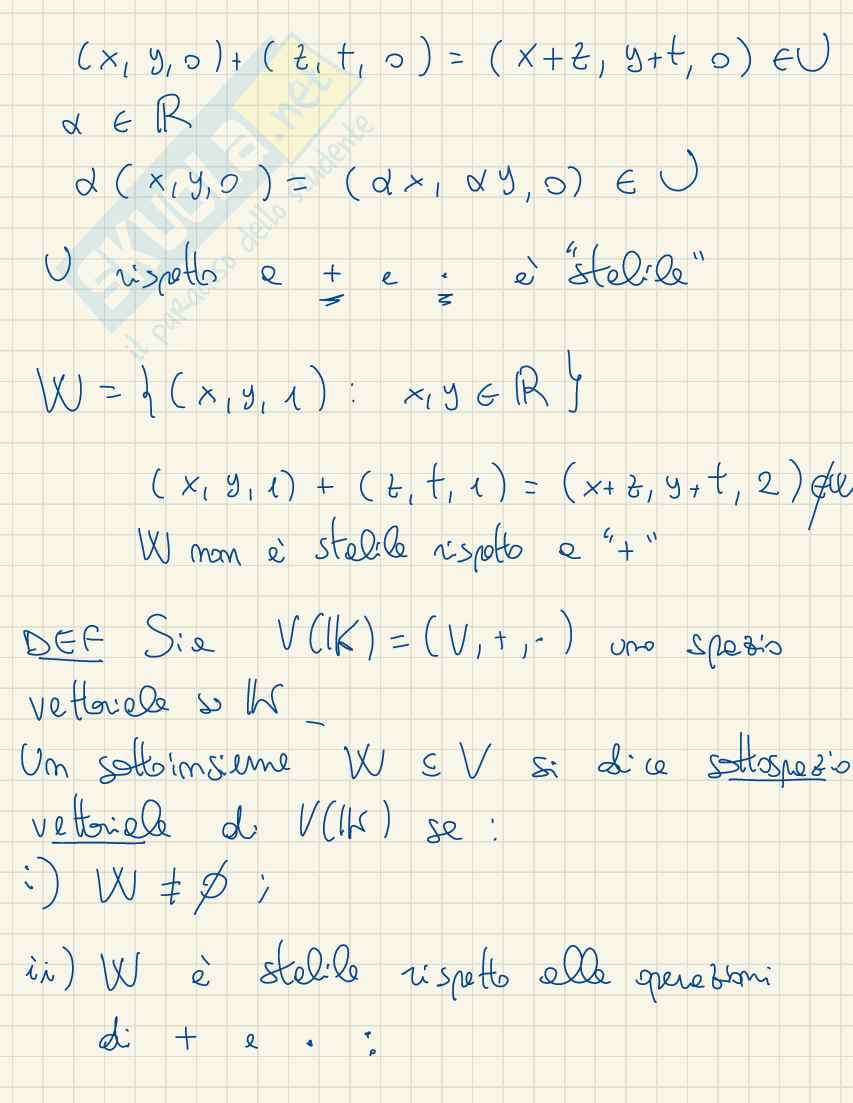 (x, y, 0) + (z, t, 0) = (x+z, y+t, 0) ∈ U
α ∈ ℝ
α (x, y, 0) = (αx, αy, 0) ∈ U
U rispetto a + e · è "stabile"
W = { (x, y, 1) : x, y ∈ ℝ }
(x, y, 1) + (z, t, 1) = (x+z, y+t, 2) ∉ W
W non è stabile rispetto a "+"
DEF Sia V(K) = (V, +, ·) uno spazio
vettoriale su K
Un sottoinsieme W ⊆ V si dice sottospazio
vettoriale di V(K) se :
i) W ≠ ∅ ;
ii) W è stabile rispetto alle operazioni
di + e · :
SKUOLA.net
il paradiso dello studente